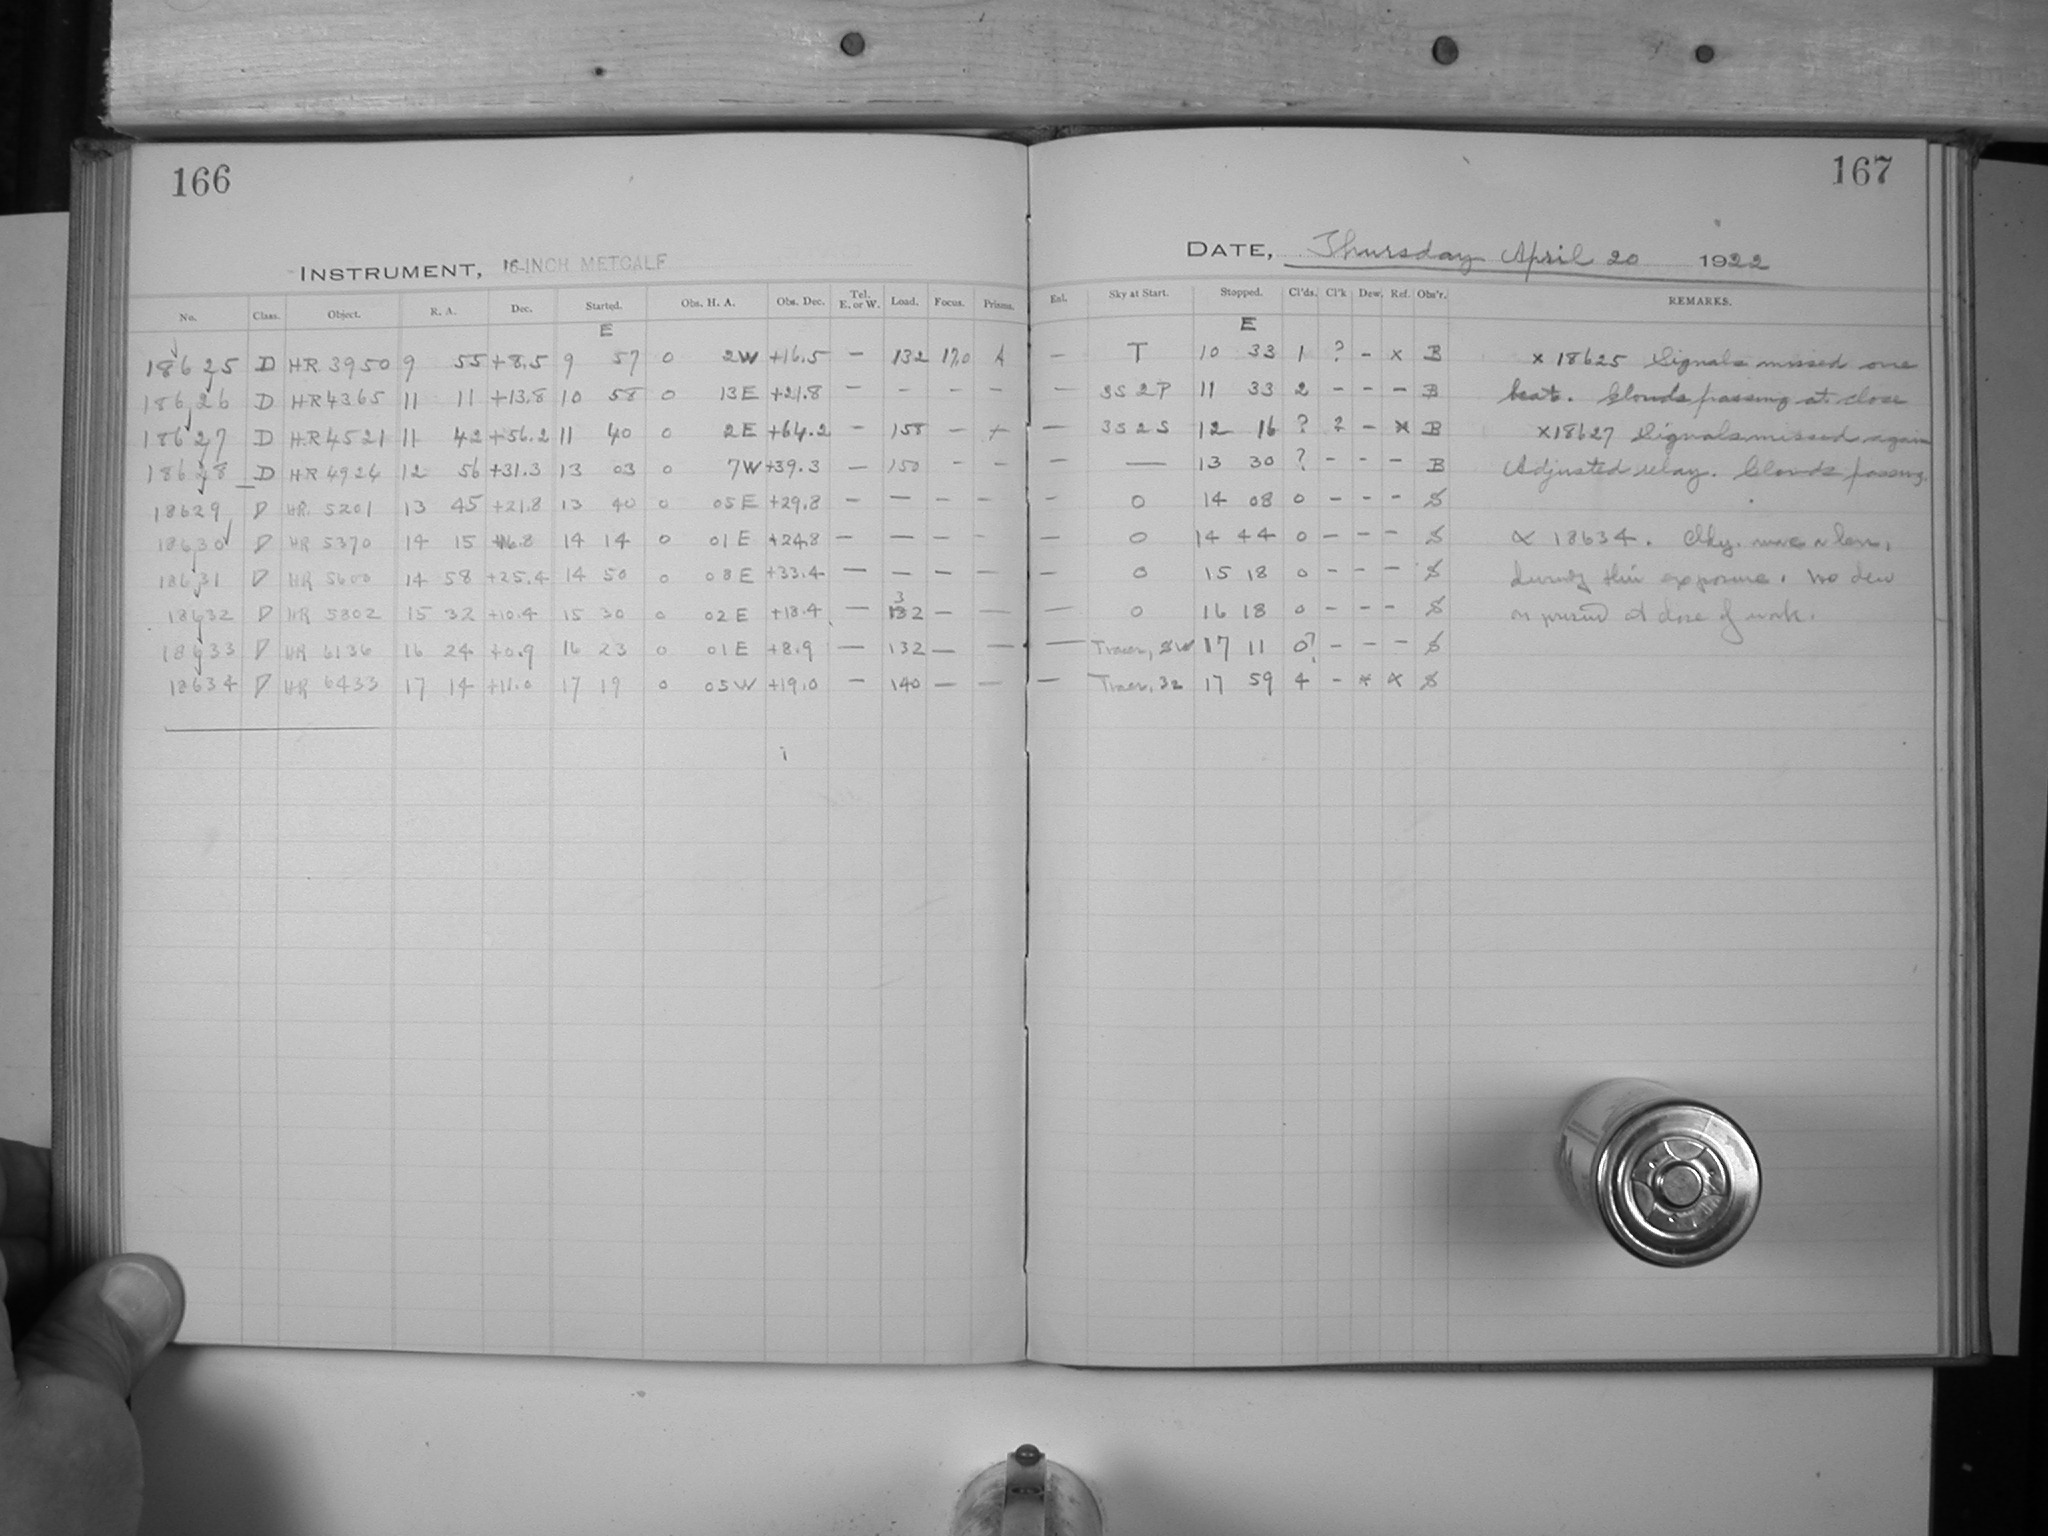 166
INSTRUMENT, 16-INCH METCALF
No. Class. Object. R. A. Dec. Started. Obs. H. A. Obs. Dec. Tel. E. or W. Load. Focus. Prisms.
E
18625 D HR 3950 9 55 +8.5 9 57 0 2W +16.5 — 132 17.0 A
18626 D HR 4365 11 11 +13.8 10 58 0 13E +21.8 — — — —
18627 D HR 4521 11 42 +56.2 11 40 0 2E +64.2 — 158 —
18628 D HR 4924 12 56 +31.3 13 03 0 7W +39.3 — 150 — —
18629 D HR. 5201 13 45 +21.8 13 40 0 05E +29.8 — — — —
18630 D HR 5370 14 15 14 14 0 01E +24.8 — — — —
18631 D HR 5600 14 58 +25.4 14 50 0 08E +33.4 — — — —
18632 D HR 5802 15 32 +10.4 15 30 0 02E +18.4 — 132 — —
18633 D HR 6136 16 24 +0.9 16 23 0 01E +8.9 — 132 — —
18634 D HR 6433 17 14 +11.0 17 19 0 05W +19.0 — 140 — —
167
DATE, Thursday April 20 1922
Enl. Sky at Start. Stopped. Cl'ds. Cl'k Dew. Ref. Obs'r. REMARKS.
E
— T 10 33 1 ? - x B x 18625 Signals missed one
— 3S 2P 11 33 2 - - - B beat. Clouds passing at close
— 3S 2S 12 16 ? ? - x B x18627 Signals missed again
— — 13 30 ? - - - B Adjusted relay. Clouds passing.
— 0 14 08 0 - - - S
— 0 14 44 0 - - - S 18634. Sky more or less,
— 0 15 18 0 - - - S during this exposure. No dew
— 0 16 18 0 - - - S on prism at close of work.
— Traces, 17 11 0? - - - S
— Traces, 17 59 4 - * S